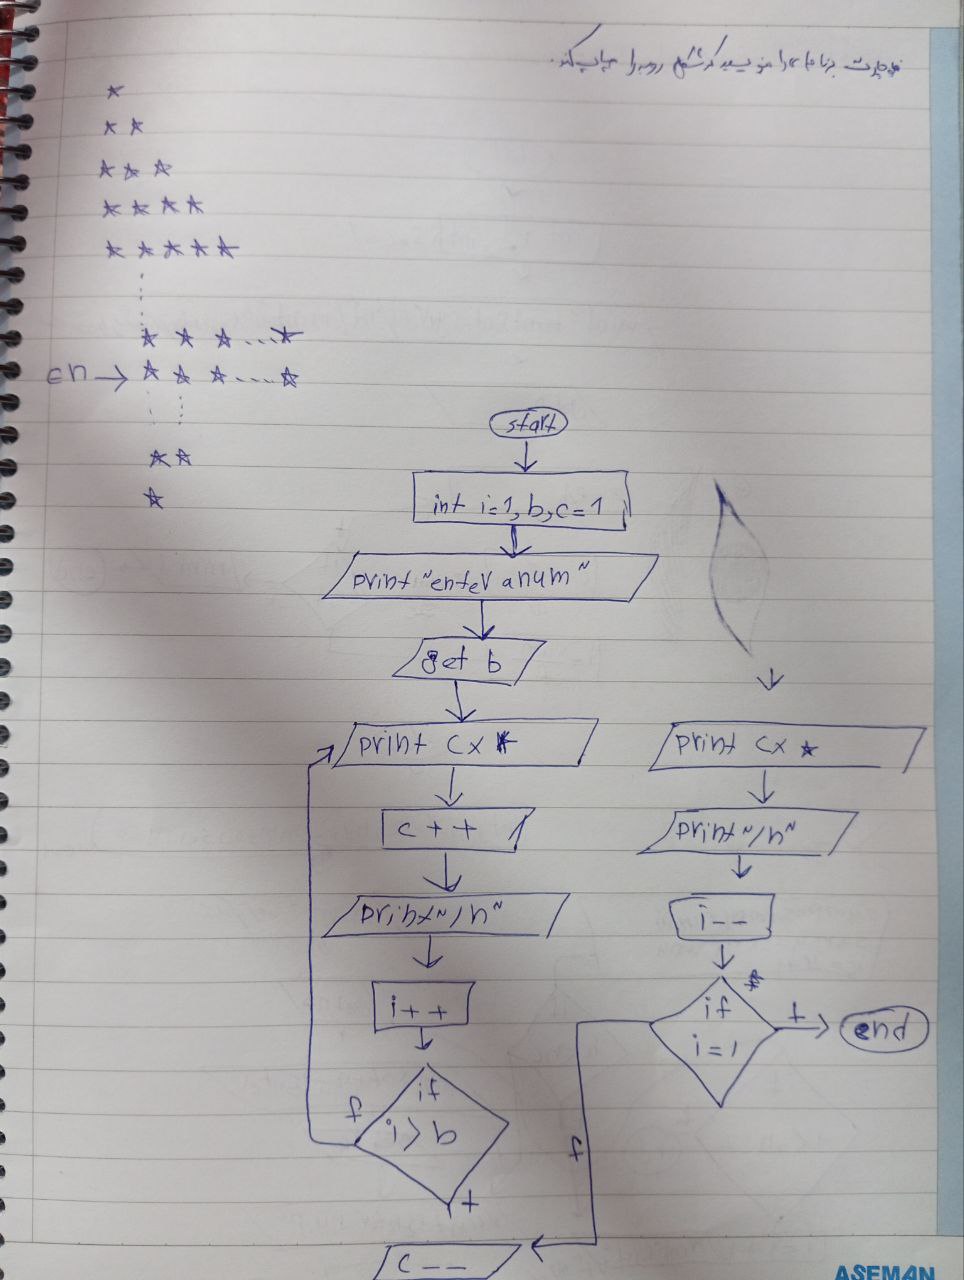 فلوچارت برنامه ای را بنویسید که شکل روبرو را چاپ کند.
*
* *
* * *
* * * *
* * * * *
* * * ... *
n → * * * .... *
* *
*
start
int i=1, b, c=1
print "enter a num"
get b
print c x *
c + +
print "/n"
i + +
if
i > b
f
t
c - -
print c x *
print "/n"
i - -
*
if
i = 1
t
f
end
ASEMAN